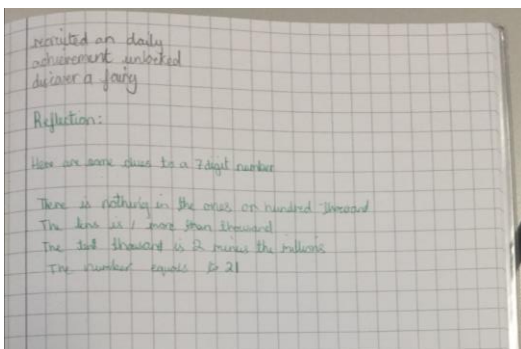 recruited an daily
achievement unlocked
discover a fairy
Reflection:
Here are some clues to a 7 digit number
There is nothing in the ones or hundred thousand
The tens is 1 more than thousand
The thousand is 2 minus the millions
The number equals to 21